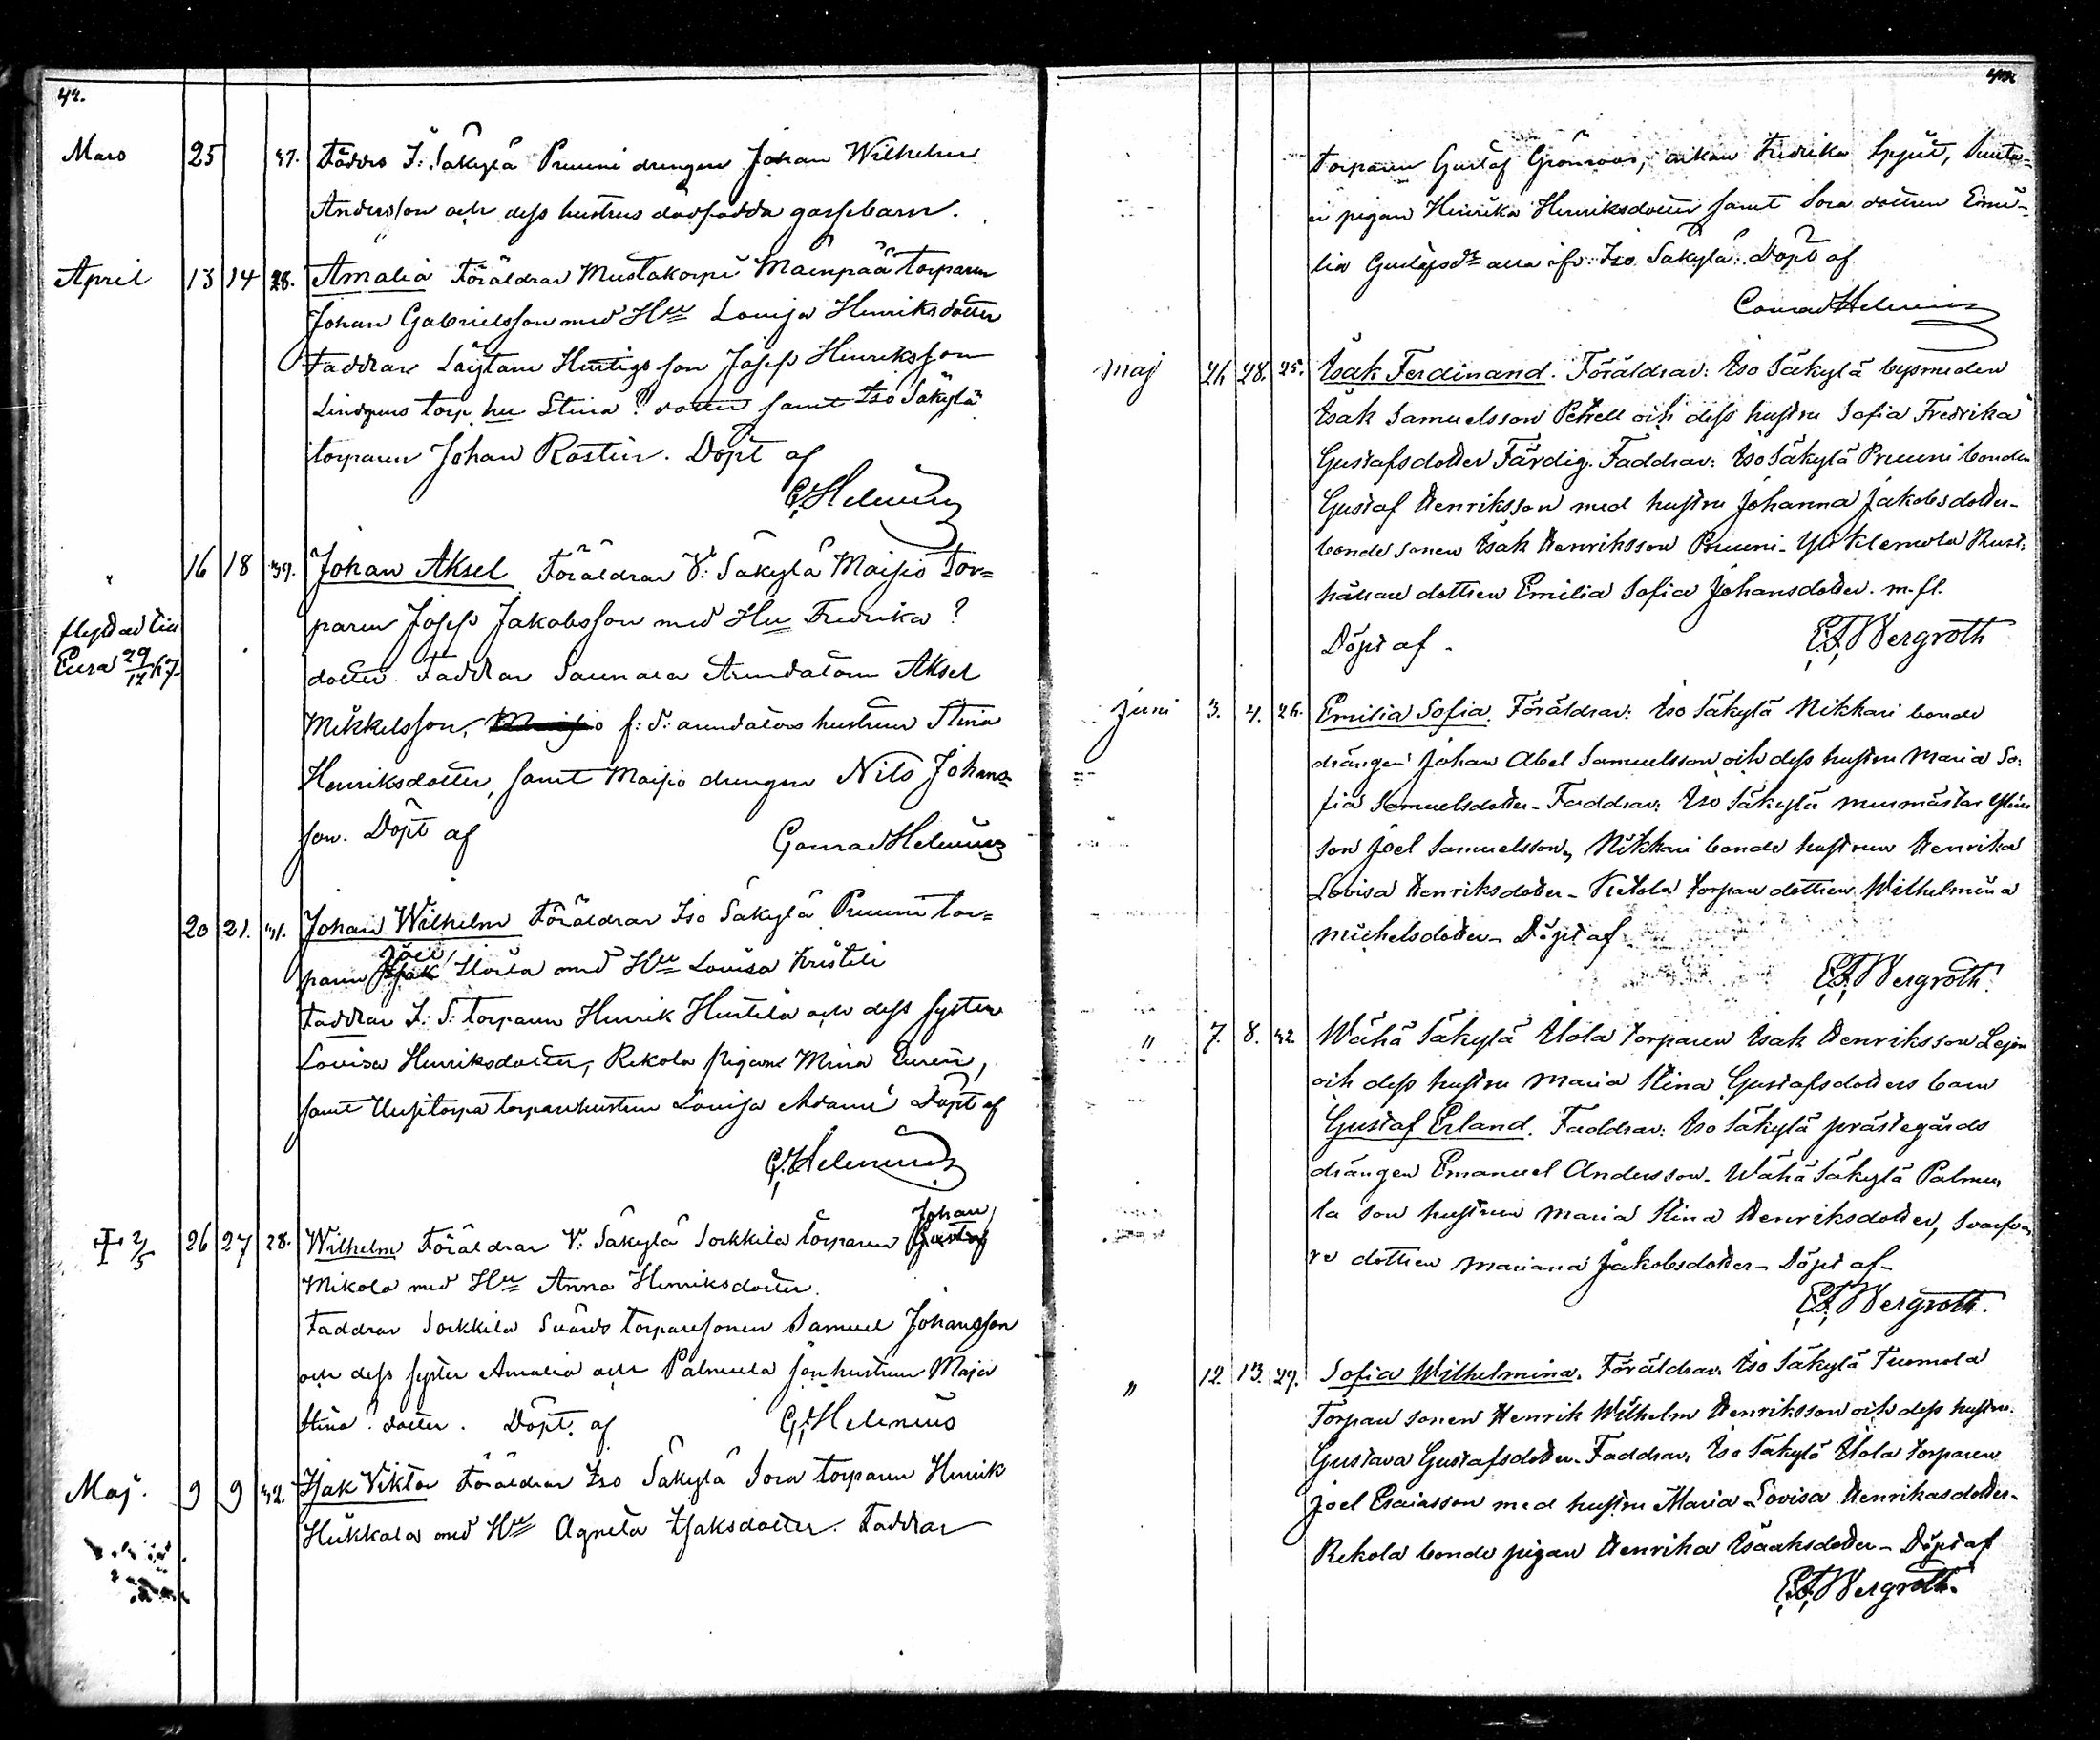 42.
Mars 25 37. Föddes I: Säkylä Pruuni drengen Johan Wilhelm
Andersson och dess hustrus dödfödda gossebarn.
April 13 14 28. Amalia Föräldrar Mustakorpi Mäenpää torparen
Johan Gabrielsson med Hu Lovisa Henriksdotter
Faddrar Löytäne Hurtigs son Josef Henriksson
Lindgrens torp. hu Stina ? dotter samt Iso Säkylä
torparen Johan Rostin. Döpt af
C. Helenius
" 16 18 39. Johan Aksel Föräldrar V: Säkylä Maisio Tor=
flyttad till
Eura 29/12 67.
paren Josef Jakobsson med Hu Fredrika ?
dotter. Faddrar Arendatorn Aksel
Mikkelsson, f: S: arendators hustrun Stina
Henriksdotter, samt Maisio drengen Nils Johans=
son. Döpt af Conrad Helenius
20 21. 31. Johan Wilhelm Föräldrar Iso Säkylä Pruuni tor=
Joel
paren Isak med Hu Lovisa Kristeli
Faddrar I: S: torparen Henrik Hurtila och dess syster
Lovisa Henriksdotter, Rekola pigan Mina Euren,
samt Uusitorpa torparehustrun Lovisa Adami Döpt af
C. Helenius
† 2/5 26 27 28. Wilhelm Föräldrar V: Säkylä Sorkkila torparen Gustaf
Johan
Mikola med Hu Anna Henriksdotter.
Faddrar Sorkkila Svärds torparesonen Samuel Johansson
och dess syster Amalia och Palmula sonhustrun Maja
Stina ? dotter. Döpt: af C. Helenius
Maj. 9 9 32. Isak Viktor Föräldrar Iso Säkylä Sora torparen Henrik
Heikkala med Hu Agneta Isaksdotter. Faddrar
torparen Gustaf Grönroos, enkan Fredrika Spjut,
pigan Henrika Henriksdotter samt Sora dottren Emi=
lia Gustafsdr alla ifr: Iso Säkylä. Döpt af
Conrad Helenius
Maj 26 28. 25. Isak Ferdinand. Föräldrar: Iso Säkylä bysmeden
Isak Samuelsson Petrell och dess hustru Sofia Fredrika
Gustafsdotter Färdig. Faddrar: Iso Säkylä Pruuni bonden
Gustaf Henriksson med hustru Johanna Jakobsdotter-
bonde sonen Isak Henriksson Pruuni- Yli Klemola Rust.
hållare dottren Emilia Sofia Johansdotter. m. fl.
Döpt af. E. F. Bergroth
Juni 3. 4. 26. Emilia Sofia. Föräldrar: Iso Säkylä Nikkari bonde
drängen Johan Abel Samuelsson och dess hustru Maria So.
fia Samuelsdotter- Faddrar: Iso Säkylä murmästar
son Joel Samuelsson, Nikkari bonde hustrun Henrika
Lovisa Henriksdotter- Kietola torpare dottren Wilhelmina
Michelsdotter- Döpt af
E. F. Bergroth.
" 7. 8. 32. Wähä Säkylä Uola torparen Isak Henriksson Lejon
och dess hustru Maria Stina Gustafsdotters barn
Gustaf Erland. Faddrar: Iso Säkylä prästegårds
drängen Emanuel Andersson. Wähä Säkylä Palmu,
la son hustrun Maria Stina Henriksdotter, Svarfva,
re dottren Mariana Jakobsdotter- Döpt af-
E. F. Bergroth.
" 12. 13. 29. Sofia Wilhelmina. Föräldrar, Iso Säkylä Tuomola
Torpare sonen Henrik Wilhelm Henriksson och dess hustru.
Gustava Gustafsdotter- Faddrar, Iso Säkylä Uola torparen
Joel Esaiasson med hustru Maria Lovisa Henrikasdotter-
Rekola bonde pigan Henrika Isaaksdotter- Döpt af
E. F. Bergroth.